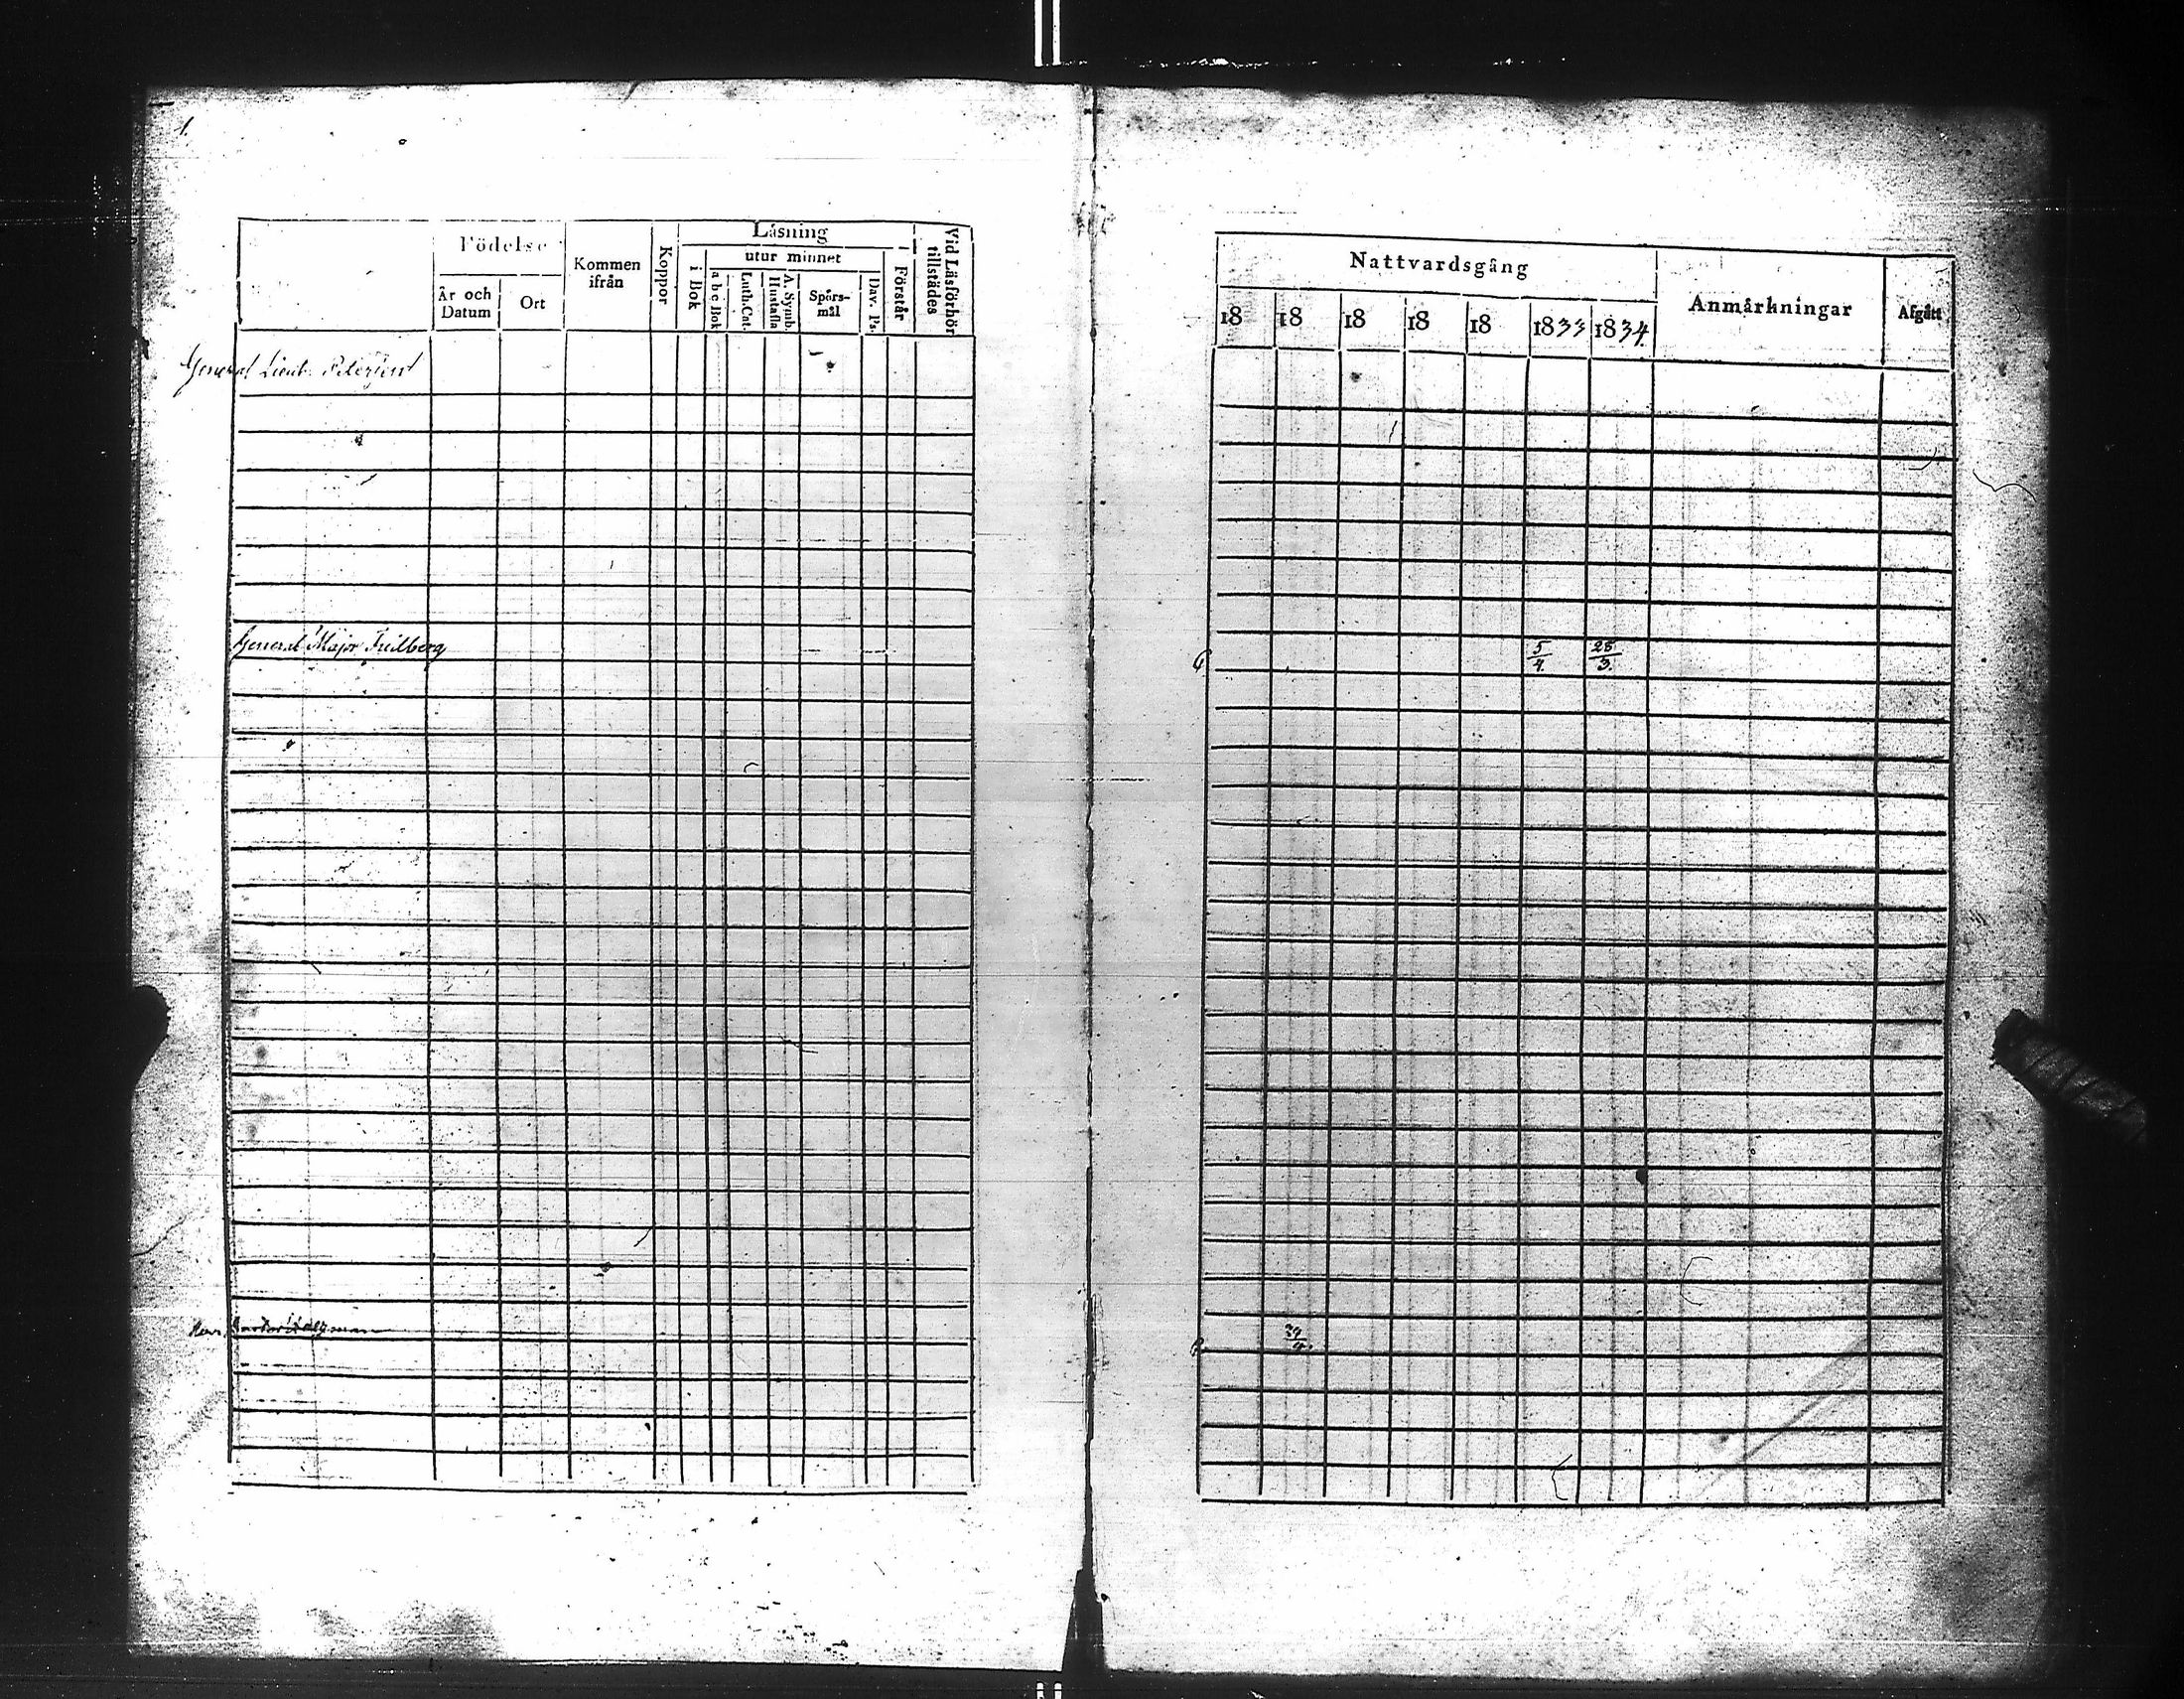 1.
Födelse
Kommen ifrån
Koppor
Läsning
Vid Läsförhör tillstädes
År och Datum
Ort
i Bok
utur minnet
Förstår
a b c Bok
Luth. Cat.
A. Symb. Hustafla
Spörs-mål
Dav. Ps.
General Lieut.
General Major Fridberg
Nattvardsgång
Anmärkningar
Afgått
18 18 18 18 18 1833 1834.
5/4. 28/3.